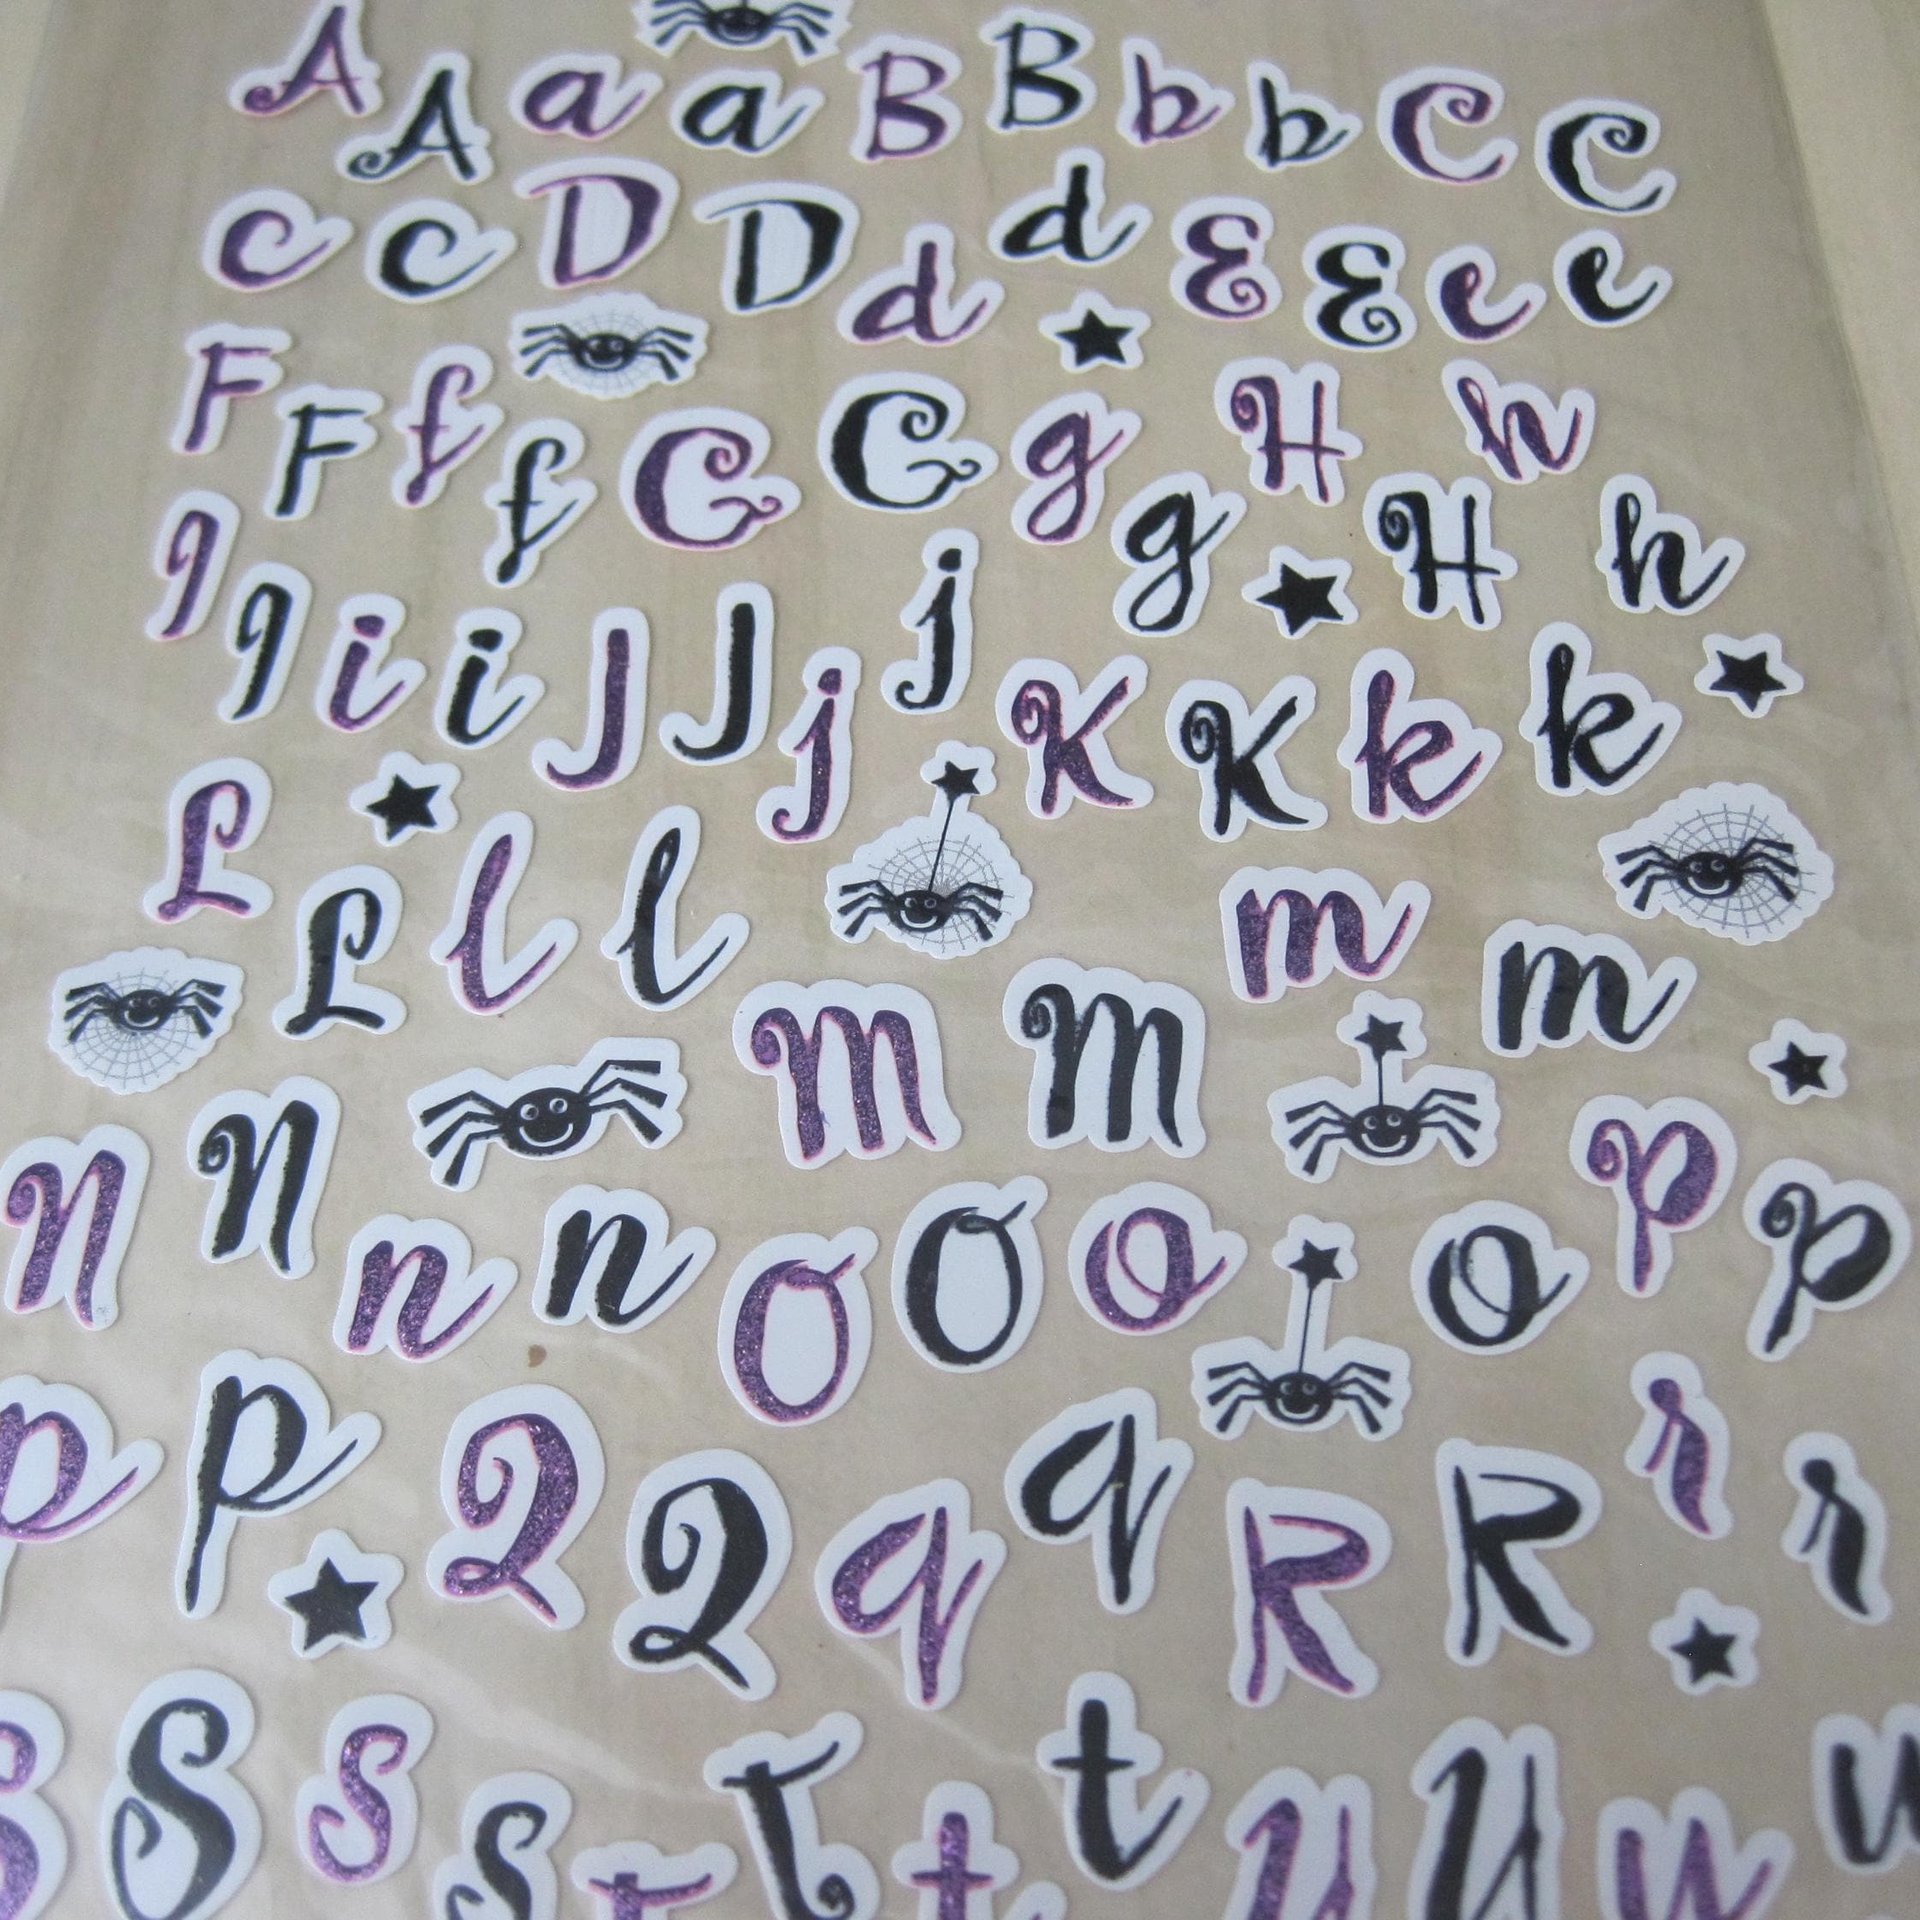 A A a a B B b b C C
c c D D d d E E e e
F F f f G G g g H H h h
I I i i J J j j K K k k
L L l l M M m m
N N n n O O o o P P
p p Q Q q q R R r r
S S s s T T t t U U u u